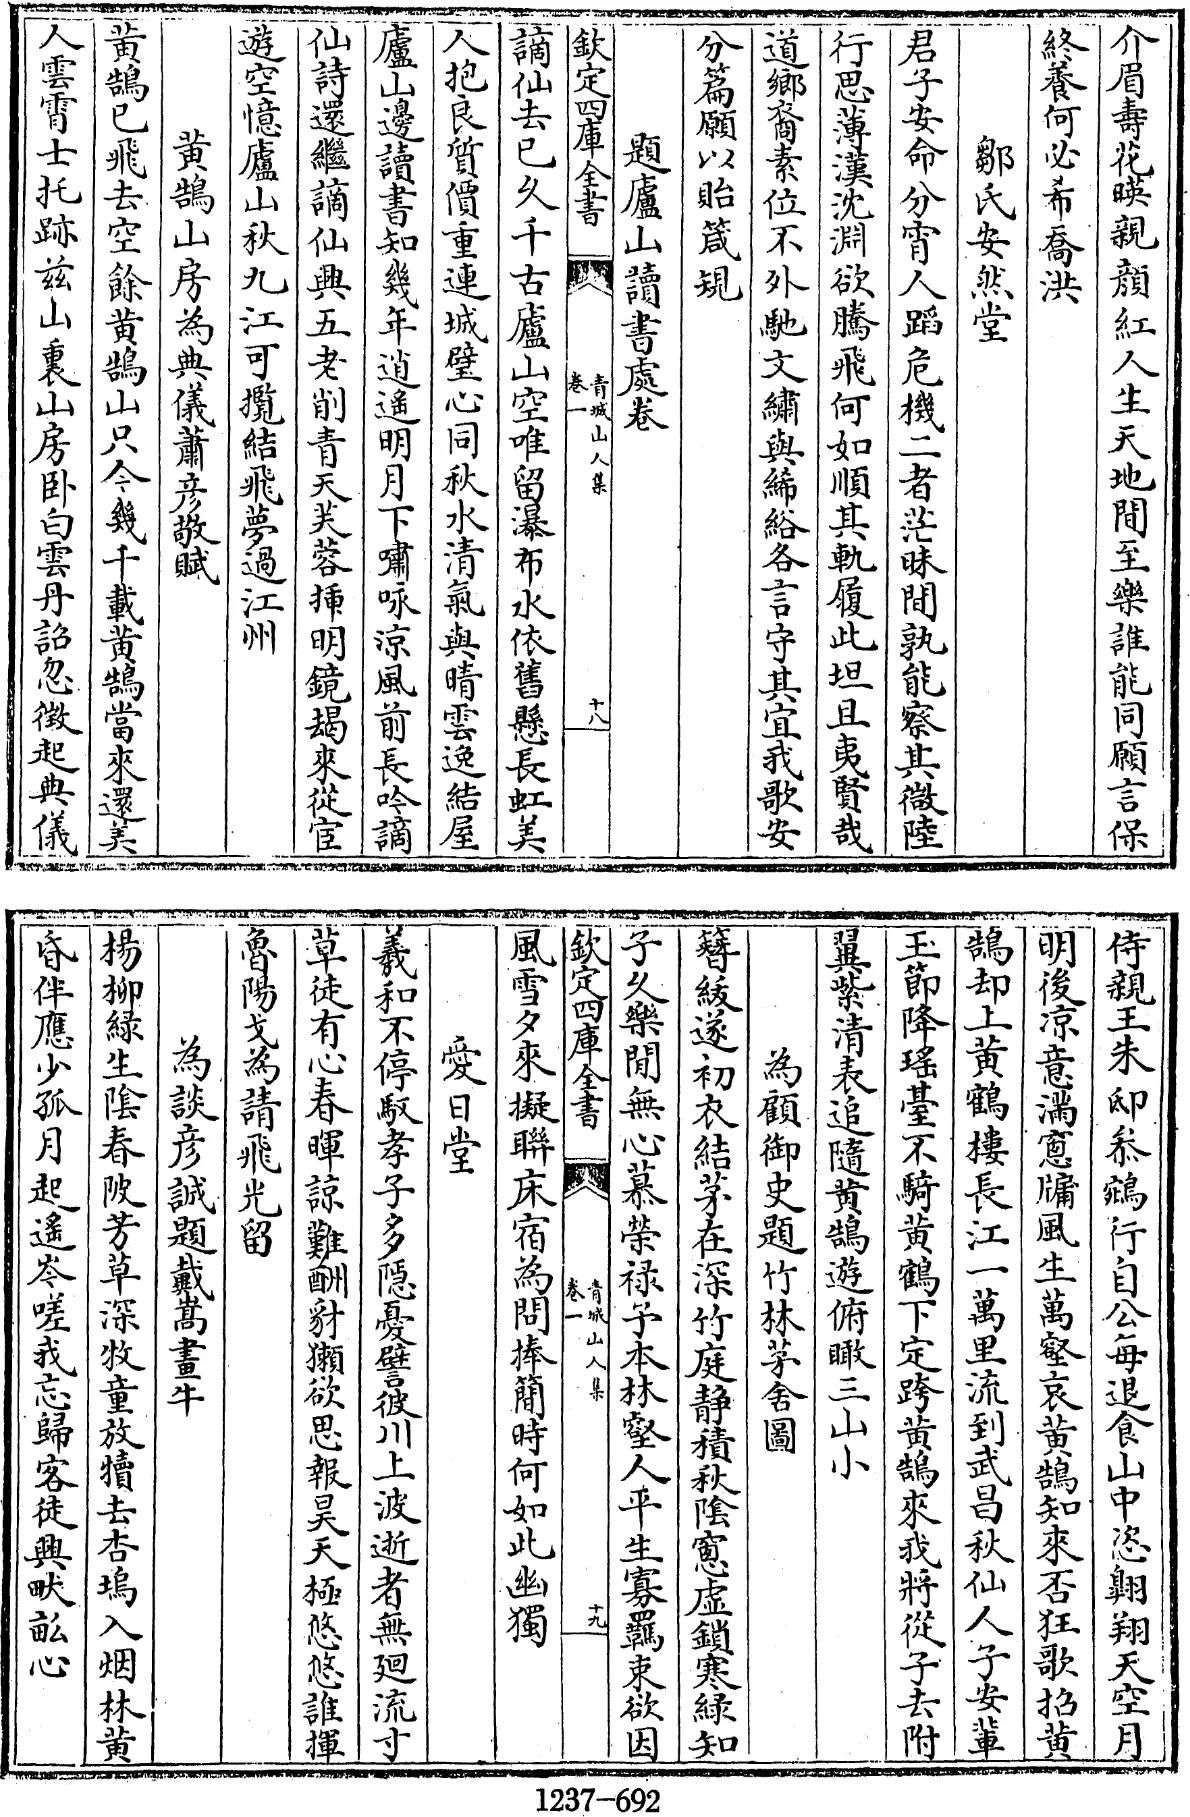 介眉壽花暎親顔紅人生天地間至樂誰能同願言保
終養何必希喬洪
鄒氏安然堂
君子安命分宵人蹈危機二者茫昧間孰能察其微陸
行思薄漢沈淵欲騰飛何如順其軌履此坦且夷賢哉
道鄉裔素位不外馳文繡與絺綌各言守其宜我歌安
分篇願以貽箴規
題廬山讀書處卷
欽定四庫全書
青城山人集
卷一
十八
謫仙去已久千古廬山空唯留瀑布水依舊懸長虹美
人抱良質價重連城璧心同秋水清氣與晴雲逸結屋
廬山邊讀書知幾年逍遥明月下嘯咏涼風前長吟謫
仙詩還繼謫仙興五老削青天芙蓉揷明鏡朅來從宦
遊空憶廬山秋九江可攬結飛夢過江州
黄鵠山房為典儀蕭彦敬賦
黄鵠已飛去空餘黄鵠山只今幾千載黄鵠當來還美
人雲霄士托跡兹山裏山房卧白雲丹詔忽徵起典儀
侍親王朱邸叅鵷行自公每退食山中恣翺翔天空月
明後凉意滿窻牖風生萬壑哀黄鵠知來否狂歌招黄
鵠却上黄鶴樓長江一萬里流到武昌秋仙人子安軰
玉節降瑶䑓不騎黄鶴下定跨黄鵠來我將從子去附
翼紫清表追隨黄鵠遊俯瞰三山小
為顧御史題竹林茅舍圖
簪緩遂初衣結茅在深竹庭静積秋陰窻虚鎖寒緑知
子久樂閒無心慕榮禄予本林壑人平生寡羈束欲因
欽定四庫全書
青城山人集
卷一
十九
風雪夕來擬聯床宿為問捧簡時何如此幽獨
愛日堂
羲和不停馭孝子多隱憂譬彼川上波逝者無廻流寸
草徒有心春暉諒難酬豺獺欲思報昊天極悠悠誰揮
魯陽戈為請飛光留
為談彦誠題戴嵩畫牛
楊柳緑生陰春陂芳草深牧童放犢去杏塢入烟林黄
昏伴應少孤月起遥岑嗟我忘歸客徒興畎畝心
1237-692